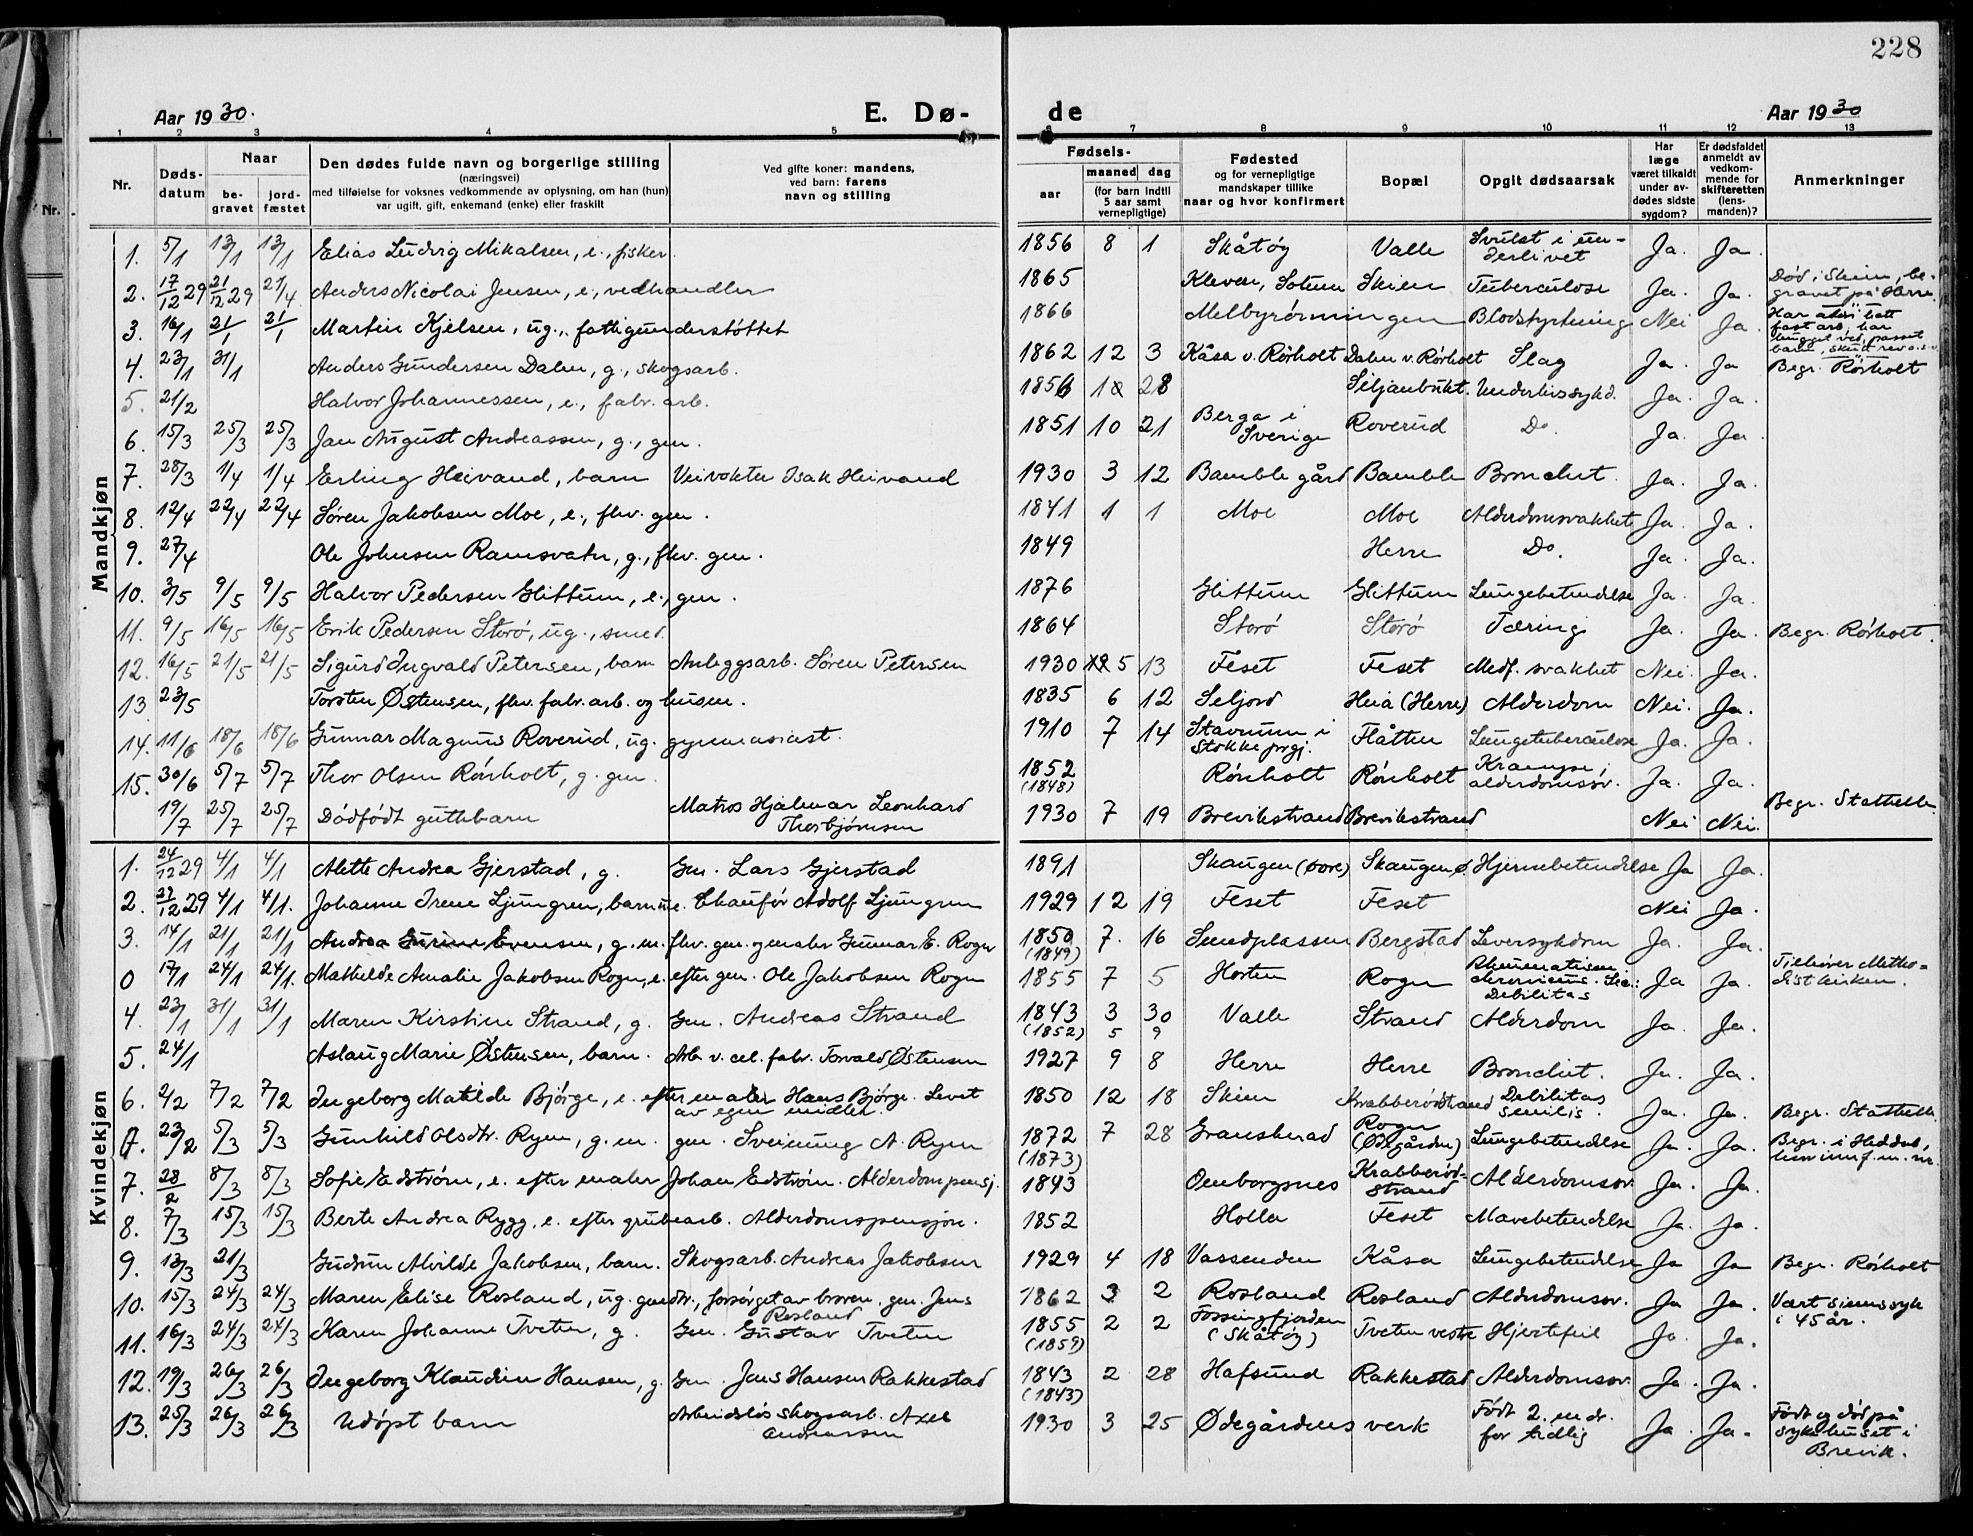 228
Aar 1930.
E. Dø-
de
Aar 1930
1 2 3 4 5 6 7 8 9 10 11 12 13
Nr. Døds-datum Naar be-gravet jord-fæstet Den dødes fulde navn og borgerlige stilling (næringsvei) med tilføielse for voksnes vedkommende av oplysning, om han (hun) var ugift, gift, enkemand (enke) eller fraskilt Ved gifte koner: mandens, ved barn: farens navn og stilling Fødsels- aar maaned dag (for barn indtil 5 aar samt vernepligtige) Fødested og for vernepligtige mandskaper tillike naar og hvor konfirmert Bopæl Opgit dødsaarsak Har læge været tilkaldt under av-dødes sidste sygdom? Er dødsfaldet anmeldt av vedkom-mende for skifteretten (lens-manden)? Anmerkninger
Mandkjøn
1. 5/1 13/1 13/1 Elias Ludvig Mikalsen, e., fisker. 1856 8 1 Skåtøy Valle Svulst i un-derlivet Ja. Ja.
2. 17/12 29 21/12 29 27/4 Anders Nicolai Jensen, e., vedhandler 1865 Kleven, Solum Skien Tuberculose Ja. Ja. Død i Skien, be-gravet på Herre.
3. 16/1 21/1 21/1 Martin Kjelsen, ug., fattigunderstøttet 1866 Melbyrønningen Blodstyrtning Nei Ja. Har aldri hatt fast arb., har hugget ved, passet barn, skutt rev o.s.v.
4. 23/1 31/1 Anders Gundersen Dalen, g., skogsarb. 1862 12 3 Kåsa v. Rørholt Dalen v. Rørholt Slag Ja. Ja Begr. Rörholt
5. 21/2 Halvor Johannessen, e., fabr. arb. 1856 10 28 Siljanbukt. Underlivssykd. Ja. Ja.
6. 15/3 25/3 25/3 Jan August Andreassen, g., gm. 1851 10 21 Berga i Sverige Roverud Do. Ja. Ja.
7. 28/3 1/4 1/4 Erling Heivand, barn Veivokter Isak Heivand 1930 3 12 Bamble gård Bamble Bronchit. Ja. Ja.
8. 12/4 22/4 22/4 Søren Jakobsen Moe, e., fhv. gm. 1841 1 1 Moe Moe Alderdomsvakhet Ja. Ja.
9. 27/4 Ole Johnsen Ramsvatn, g., fhv. gm. 1849 Herre Do. Ja. Ja.
10. 3/5 9/5 9/5 Halvor Pedersen Glittum, e., gm. 1876 Glittum Glittum Lungebetendelse Ja. Ja.
11. 9/5 16/5 16/5 Erik Pedersen Storø, ug., smed. 1864 Storø Storø Tæring Ja. Ja. Begr. Rörholt.
12. 16/5 21/5 21/5 Sigurd Ingvald Petersen, barn Anleggsarb. Søren Petersen 1930 5 13 Feset Feset Medf. svakhet Nei. Ja.
13 23/5 Torsten Østensen, fhv. fabr. arb. og husm. 1835 6 12 Seljord Heiå (Herre) Alderdom Nei. Ja.
14. 11/6 18/6 18/6 Gunnar Magnus Roverud, ug. gymnasiast. 1910 7 14 Stavnum i Stokke prgj. Flåtten Lungetuberculose Ja. Ja.
15. 30/6 5/7 5/7 Thor Olsen Rörholt, g. gm. 1852 (1848) Rönholt Rönholt Krampe, alderdomssv. Ja. Ja.
19/7 25/7 25/7 Dödfödt guttebarn Matros Hjalmar Leonhard Thorbjørnsen 1930 7 19 Brevikstrand Brevikstrand Nei Nei. Begr. Stathelle
Kvindekjøn
1. 24/12 29 4/1 4/1 Alette Andrea Gjerstad, g. Gm. Lars Gjerstad 1891 Skaugen (Øvre) Skaugen Ø. Hjernebetendelse Ja Ja.
2. 27/12 29 4/1 4/1. Johanne Irene Ljungren, barn u.e. Chauför Adolf Ljungren 1929 12 19 Feset Feset Nei Ja.
3. 14/1 21/1 21/1 Andrea Gurine Evensen, g. m. fhv. gm. ymaler Gunnar E. Rogn 1850 (1849) 7. 16 Sundplassen Bergstad Leversykdom Ja. Ja.
0 17/1 24/1 24/1. Mathilde Amalie Jakobsen Rogn, e. efter gm. Ole Jakobsen Rogn 1855 7 5 Horten Rogn Rhumatismen chronicus. Debilitas Ja Ja. Tilhører Metho-distkirken.
4. 23/1 31/1 31/1 Maren Kirstine Strand, g. Gm. Andreas Strand 1843 (1852) 3 5 30 9 Valle Strand Alderdom Ja. Ja.
5. 24/1 Aslaug Marie Østensen, barn. Arb. v. cel. fabr. Torvald Østensen 1927 9 8 Herre Herre Bronchit. Ja. Ja.
6. 2/2 7/2 7/2 Ingeborg Matilde Bjørge, e. efter maler Hans Bjørge. Levet av egne midler. 1850 12 18 Skien Krabberødstrand Debilitas senilis. Ja. Ja. Begr. Stathelle
0. 23/2 5/3 5/3 Gunhild Olsdtr. Ryen, g. m. gm. Sveinung A. Ryen 1872 (1873) 7 28 Gransherad Rogn (Ødegården) Lungebetendelse Ja. Ja. Begr. i Heddal,
7. 28/2 8/3 8/3 Sofie Edstrøm, e. efter maler Johan Edstrøm. Alderdomspensj. 1843 Oenborgsnes Krabberød-strand Alderdomssv. Ja. Ja.
8. 7/3 15/3 15/3 Berte Andrea Rygg, e. efter grubearb. Alderdomspensjon. 1852 Holla Feset Mavebetendelse Ja. Ja.
9. 13/3 21/3 Gudrun Alvilde Jakobsen, barn. Skogsarb. Andreas Jakobsen 1929 4 18 Vassenden Kåsa Lungebetendelse Ja Ja Begr. Rörholt
10. 15/3 24/3 24/3 Maren Elise Rosland, ug. gmdtr., forsörget av broren, gm. Jens Rosland 1862 3 2 Rosland Rosland Alderdomssv. Ja Ja. Vært sinnssyk i 45 år.
11. 16/3 24/3 24/3 Karen Johanne Tveten, g. Gm. Gustav Tveten 1855 (1859) 2 2 Fossingfjorden (Skåtøy) Tveten vestre Hjertefeil Ja. Ja.
12. 19/3 26/3 26/3 Ingeborg Klaudine Hansen, g. Gm. Jens Hansen Rakkestad 1843 (1843) 2 28 Hafsund Rakkestad Alderdomssv. Ja. Ja.
13. 25/3 26/3 26/3 Udøpt barn Arbeidsløs skogsarb. Axel Andreassen 1930 3 25 Ødegårdens verk Født 2 mdr. for tidlig Ja. Ja. Født og død på sykehuset i Brevik.